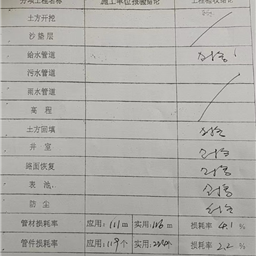 分项工程名称 施工单位报验结论 工程验收结论
土方开挖
砂垫层
给水管道 合格
污水管道
雨水管道
高程
土方回填 合格
井室 合格
路面恢复 合格
表池 合格
防尘 合格
管材损耗率 应用：111 m 实用：116 m 损耗率 4.1 %
管件损耗率 应用：119个 实用： 个 损耗率 2.2 %